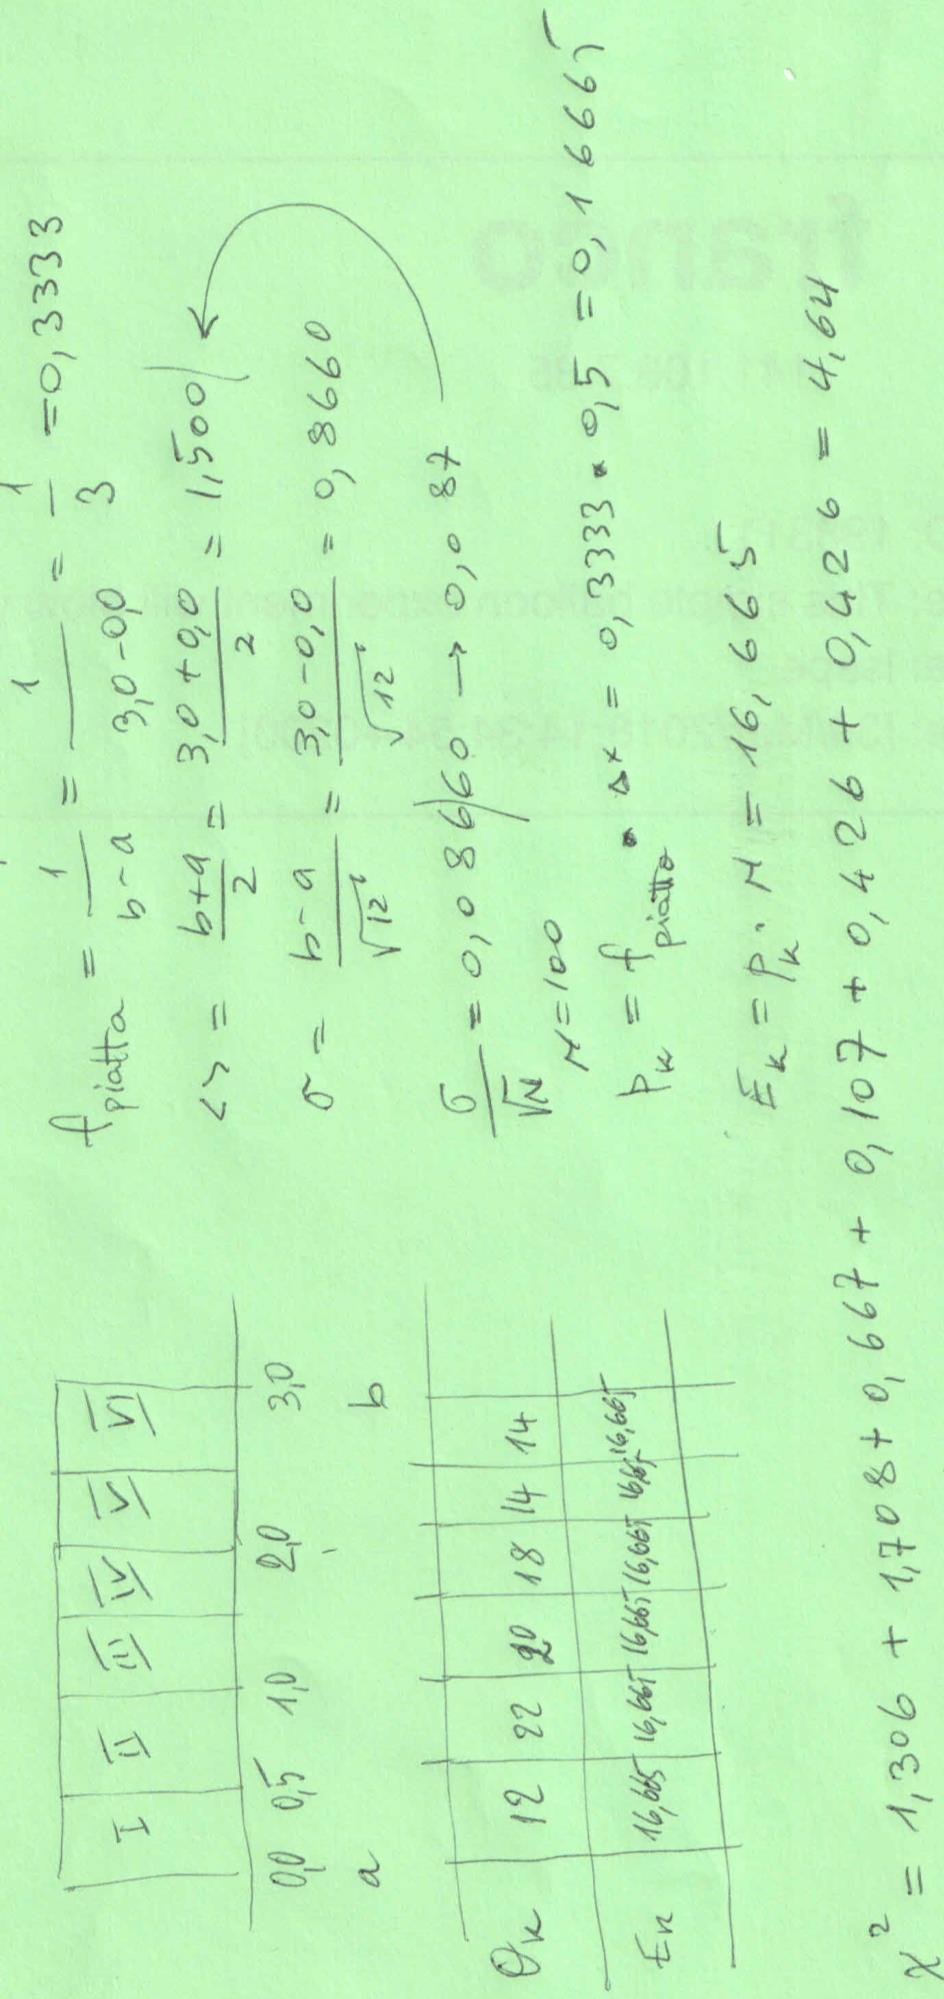 I II III IV V VI
0,0 0,5 1,0 2,0 3,0
a b
O_k 12 22 20 18 14 14
E_k 16,665 16,665 16,665 16,665 16,665 16,665
f_piatta = 1/(b-a) = 1/(3,0-0,0) = 1/3 = 0,3333
<> = (b+a)/2 = (3,0+0,0)/2 = 1,500
σ = (b-a)/√12 = (3,0-0,0)/√12 = 0,8660
σ/√N = 0,08660 → 0,087
N=100
P_k = f_piatta · Δx = 0,3333 · 0,5 = 0,16665
E_k = P_k · N = 16,665
χ² = 1,306 + 1,708 + 0,667 + 0,107 + 0,426 + 0,426 = 4,64